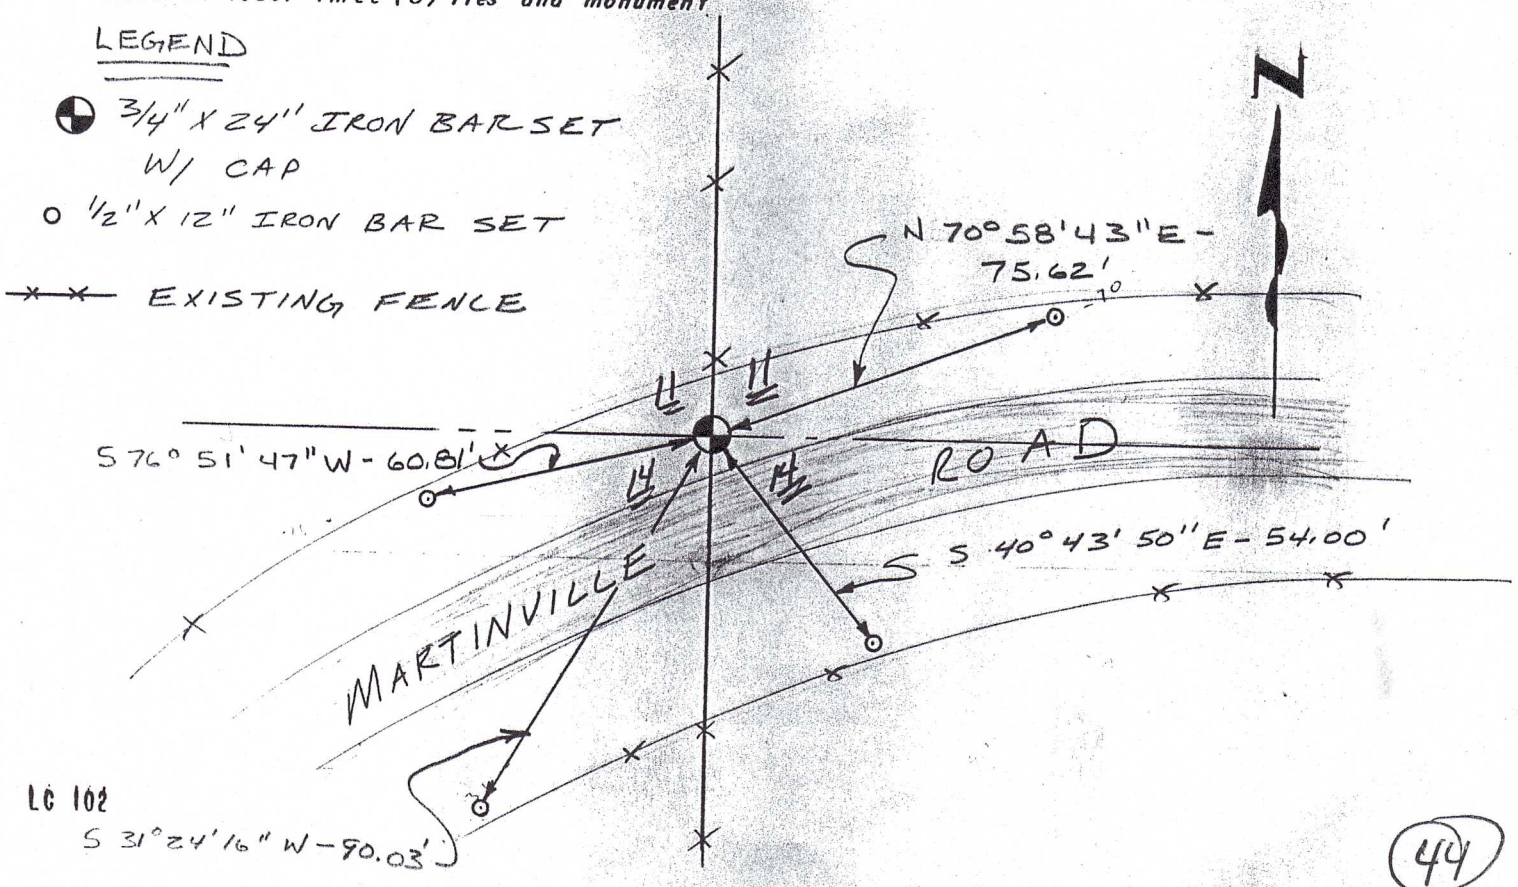 Three (3) ties and monument
LEGEND
3/4" X 24" IRON BAR SET
W/ CAP
1/2" X 12" IRON BAR SET
EXISTING FENCE
N
N 70° 58' 43" E -
75.62'
11 11
S 76° 51' 47" W - 60.81'
14 14
MARTINVILLE ROAD
S 40° 43' 50" E - 54.00'
LC 102
S 31° 24' 16" W - 90.03'
44